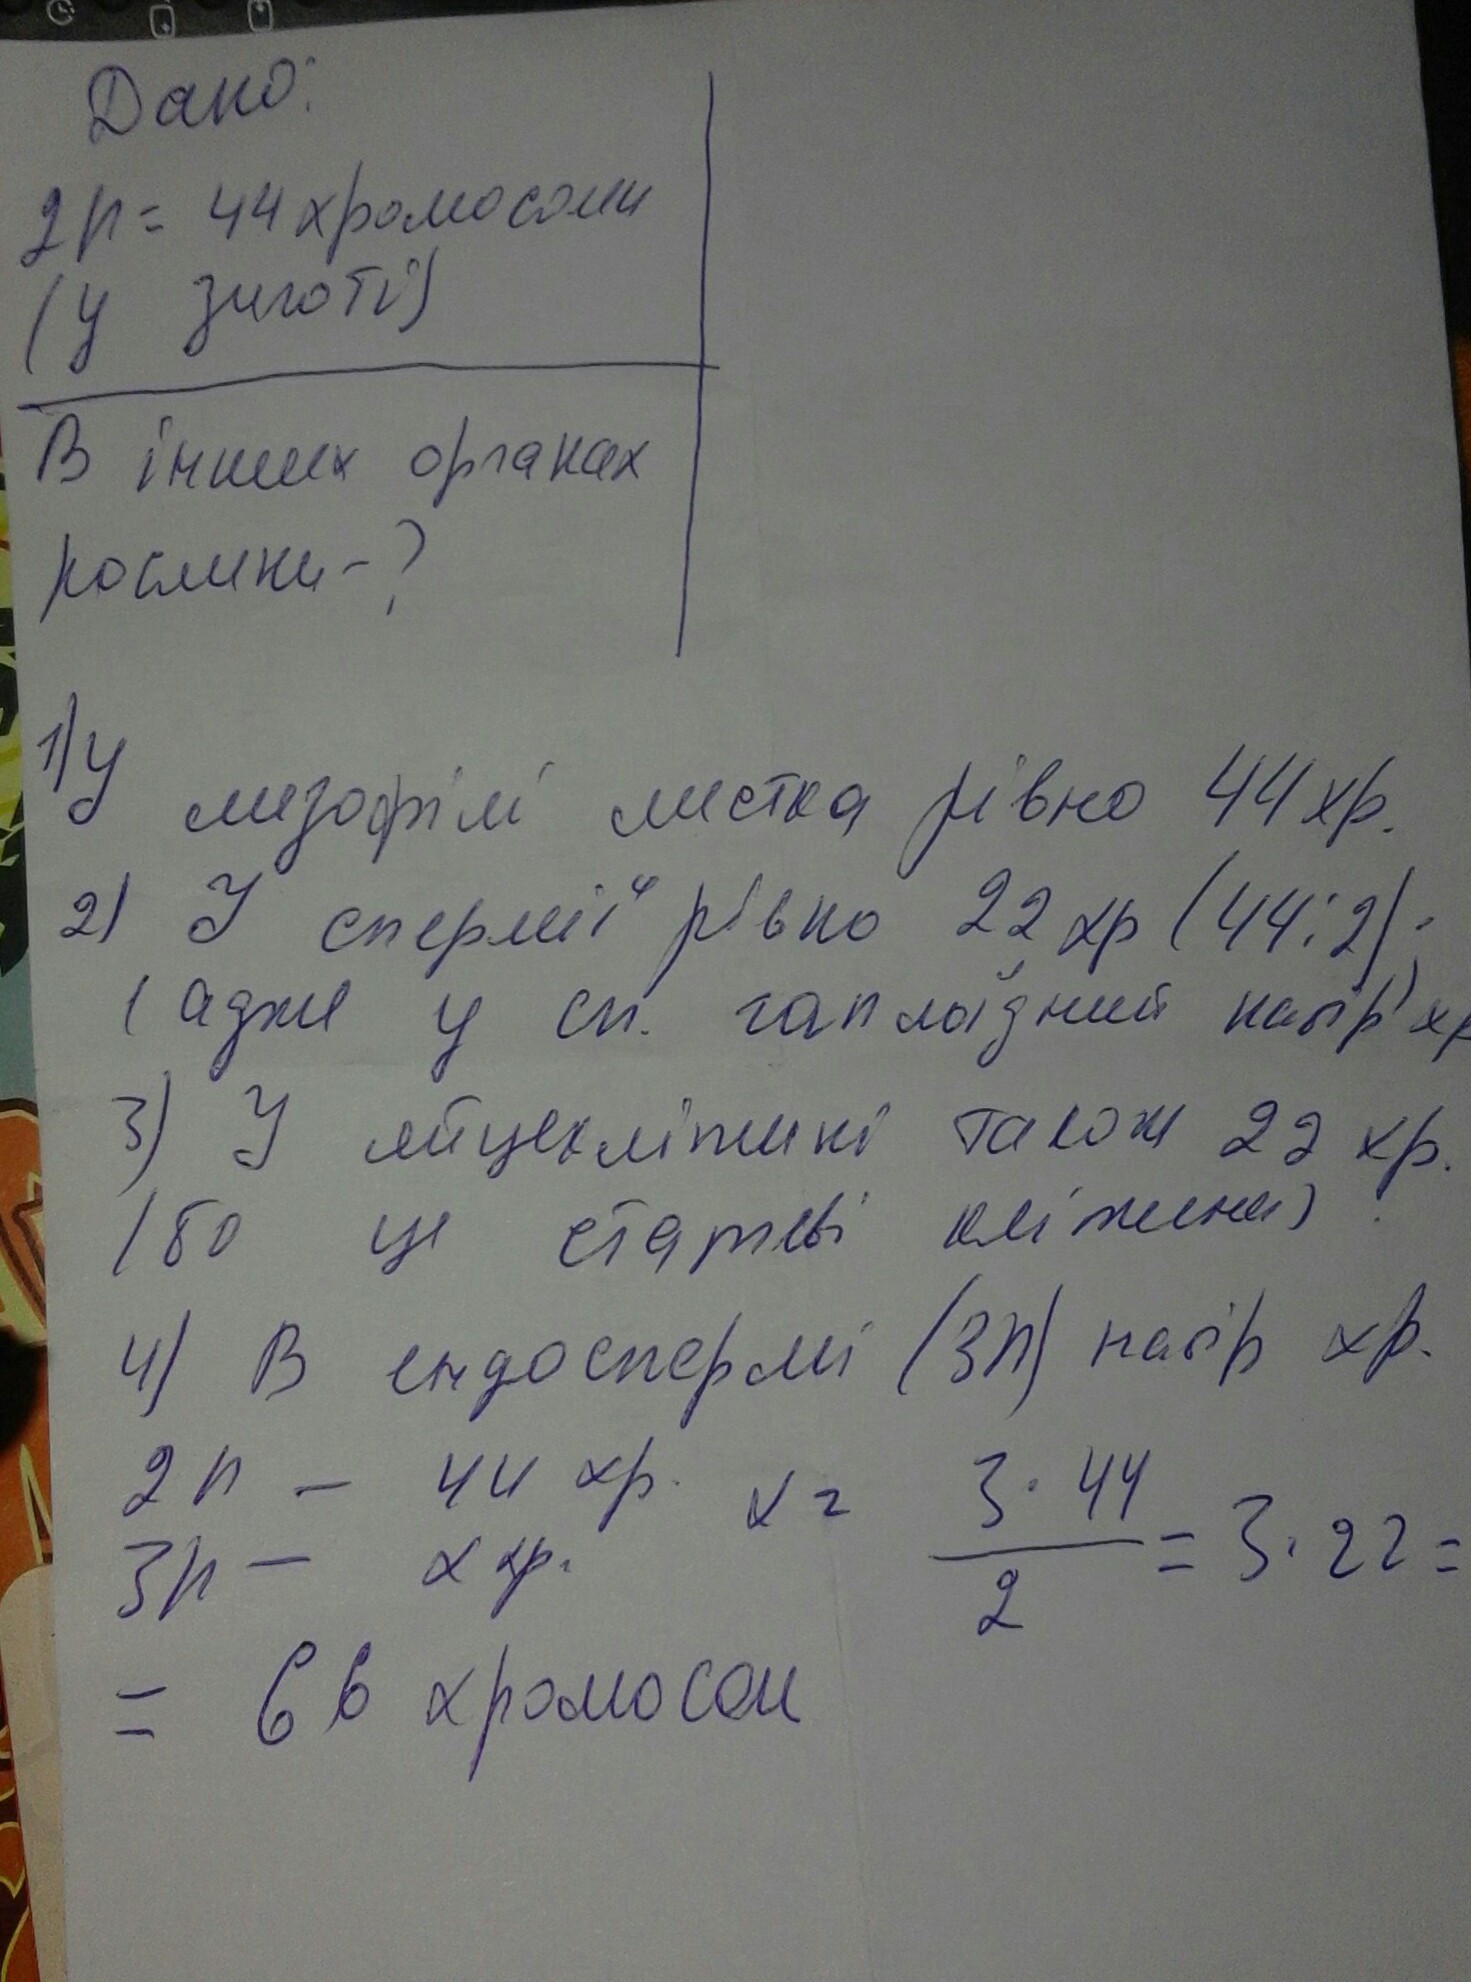 Дано:
2n = 44 хромосоми
(у зиготі)
В інших органах
рослини - ?
1) У
мезофілі листка рівно 44 хр.
2) У спермії рівно 22 хр (44:2);
(адже у сп. гаплоїдний набір хр
3) У яйцеклітині також 22 хр.
(бо це статеві клітини)
4) В ендоспермі (3n) набір хр.
2n – 44 хр. x = 3·44/2 = 3·22 =
3n – x хр.
= 66 хромосом